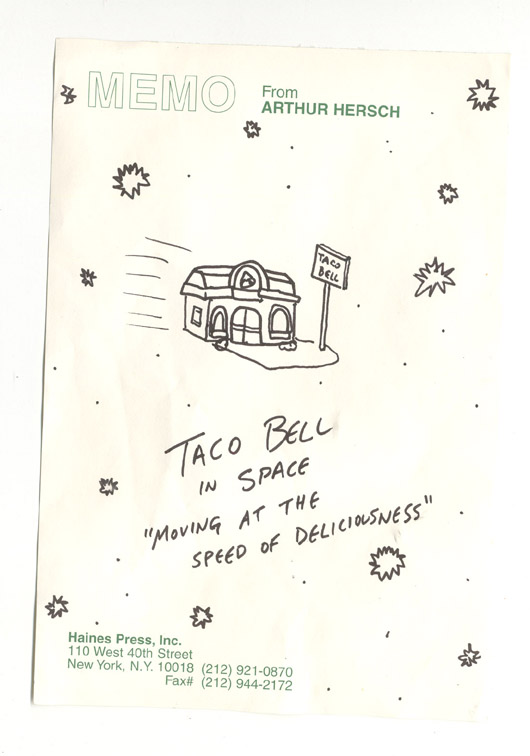 MEMO
From
ARTHUR HERSCH
TACO
BELL
TACO BELL
IN SPACE
"MOVING AT THE
SPEED OF DELICIOUSNESS"
Haines Press, Inc.
110 West 40th Street
New York, N.Y. 10018 (212) 921-0870
Fax# (212) 944-2172